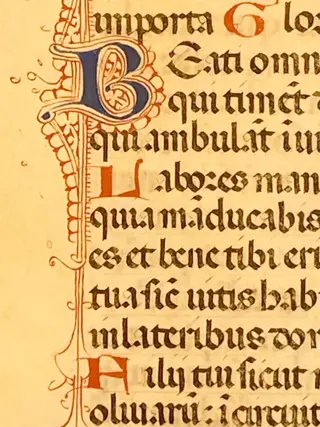 in porta Glo
BEati omn
qui timēt
qui ambulāt in
Labores man
quia māducabis
es et bene tibi eri
tua sic̄ uitis hab
in lateribus dom
Filij tui sicut
oliuarū: ī circuit